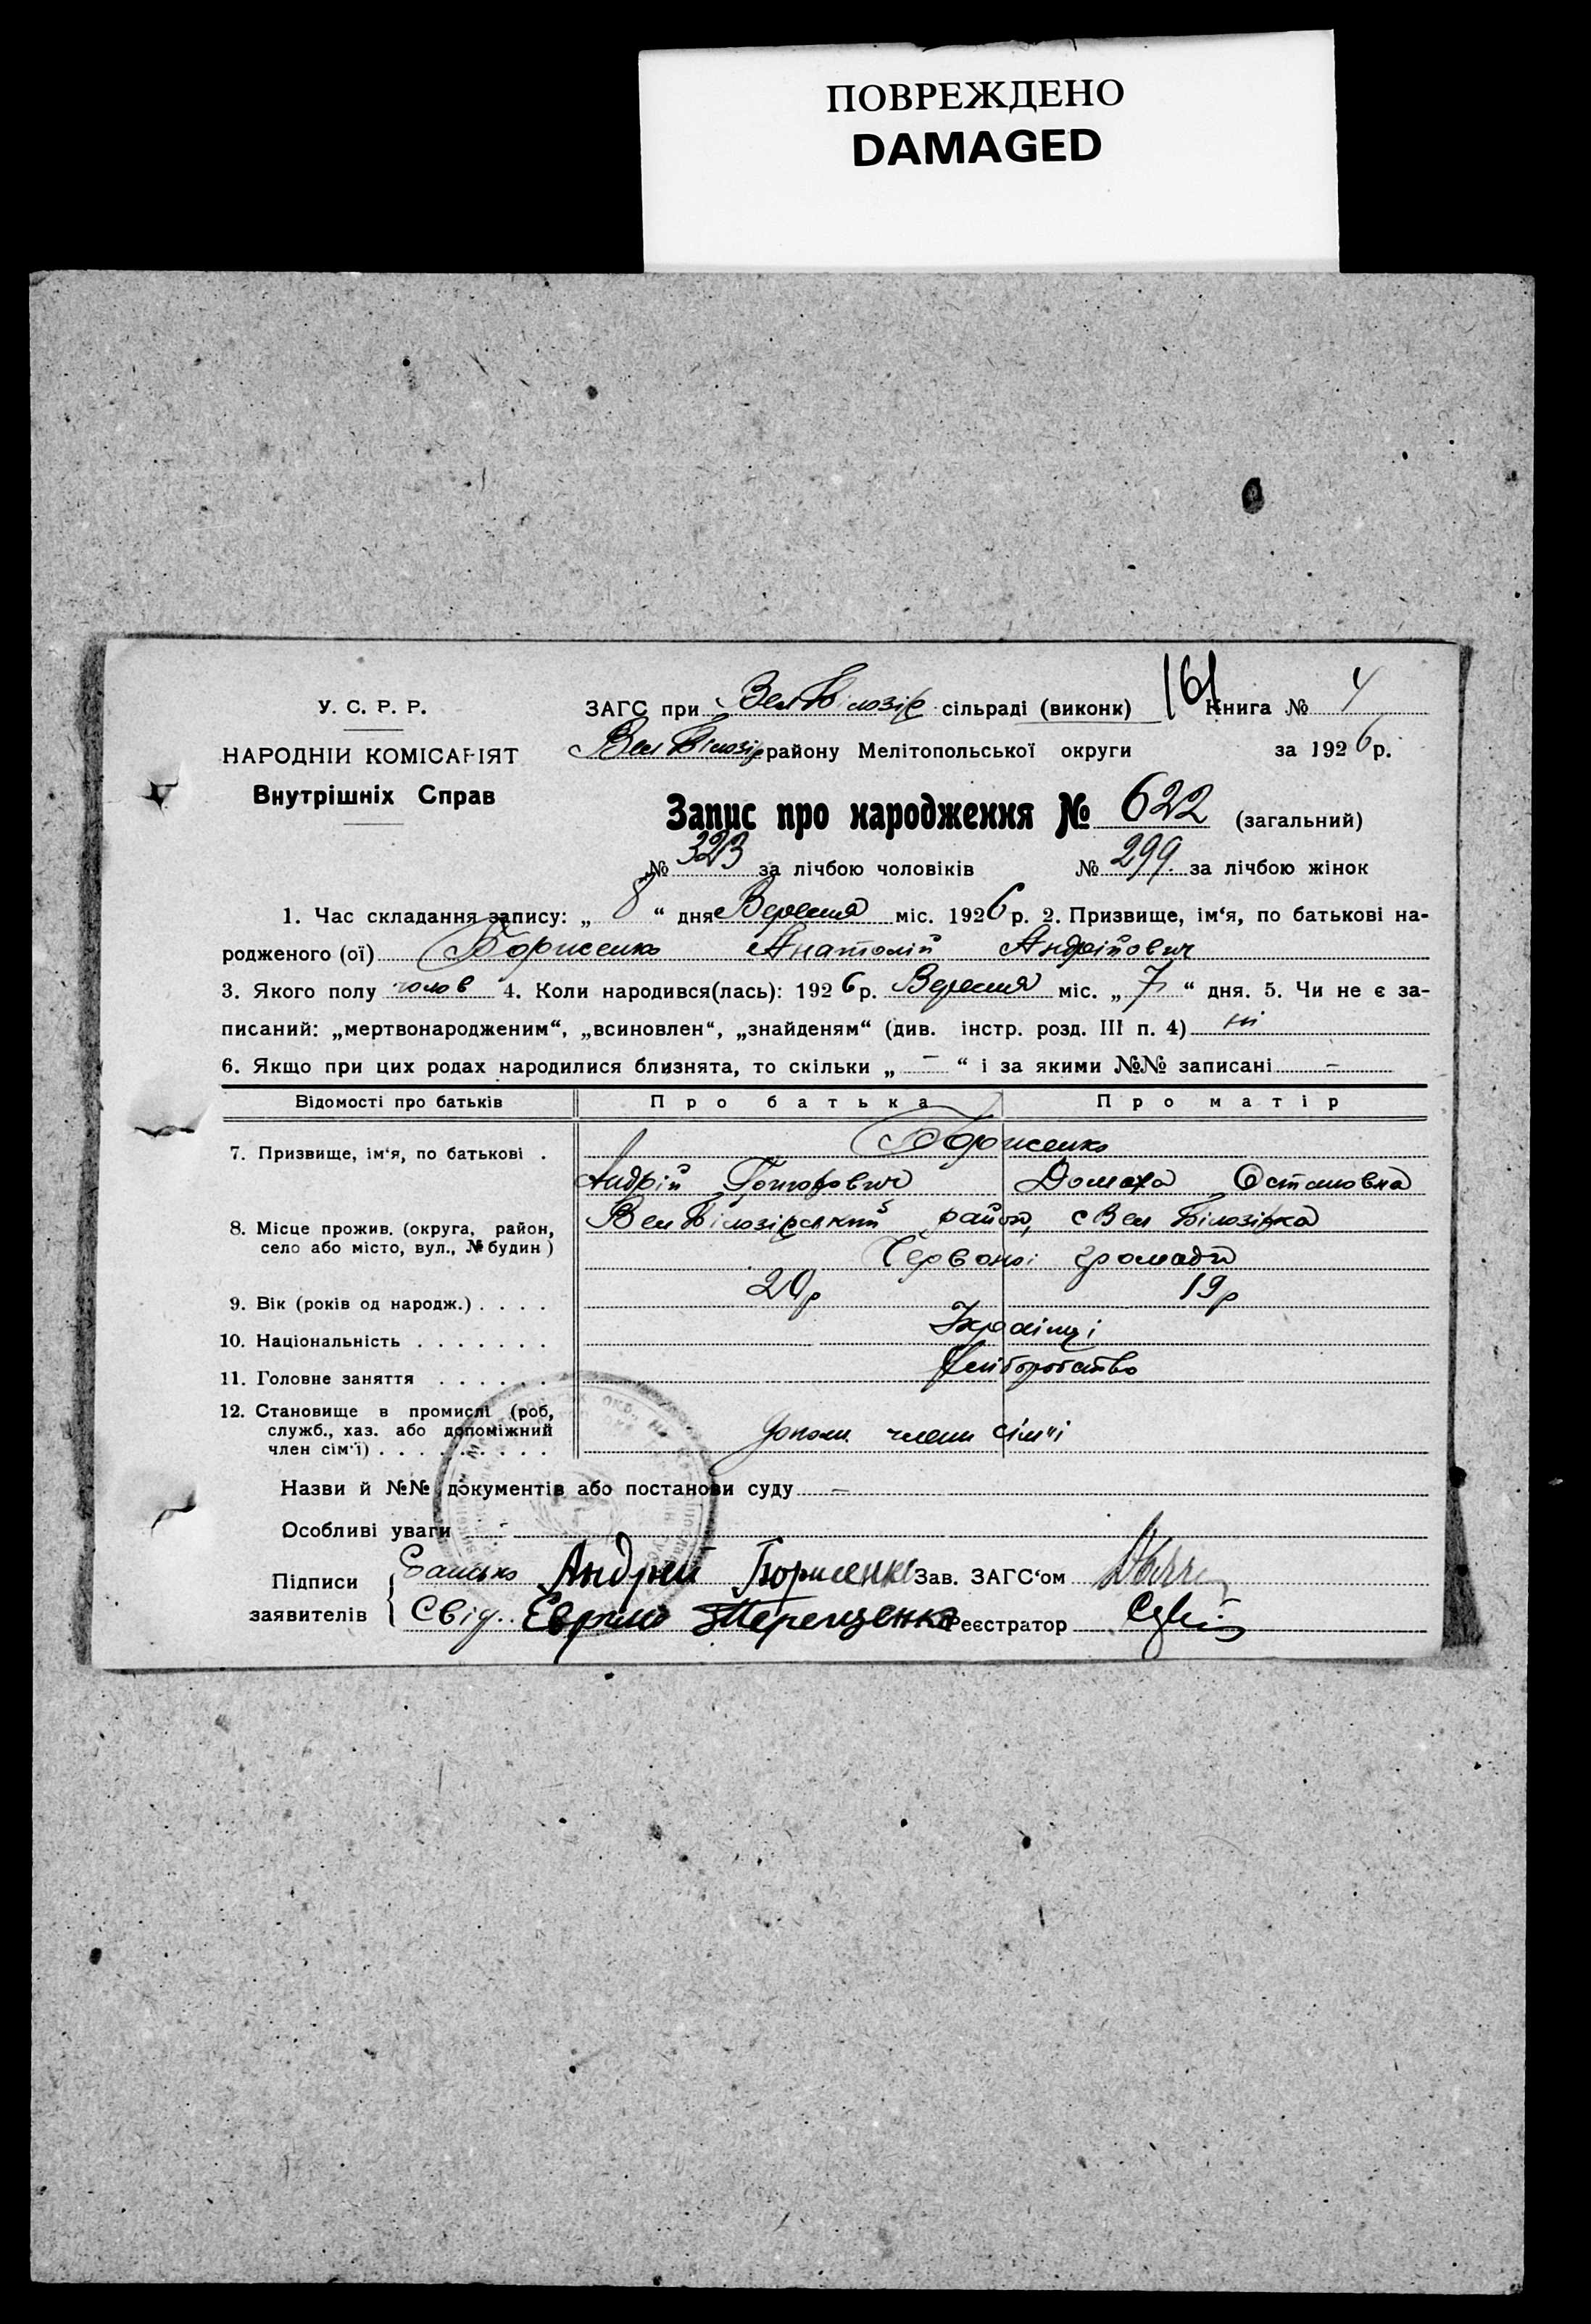 ПОВРЕЖДЕНО
DAMAGED
161
У. С. Р. Р.
НАРОДНІЙ КОМІСАРІЯТ
Внутрішніх Справ
ЗАГС при Вел Білозір сільраді (виконк) Книга № 4
Вел Білозір району Мелітопольської округи за 1926 р.
Запис про народження № 622 (загальний)
№ 323 за лічбою чоловіків № 299 за лічбою жінок
1. Час складання запису: „ 8 “ дня Вересня міс. 1926 р. 2. Призвище, ім‘я, по батькові на-
родженого (ої) Борисенко Анатолій Андрійович
3. Якого полу чолов 4. Коли народився(лась): 1926 р. Вересня міс. „ 7 “ дня. 5. Чи не є за-
писаний: „мертвонародженим“, „всиновлен“, „знайденям“ (див. інстр. розд. III п. 4) ні
6. Якщо при цих родах народилися близнята, то скільки „ – “ і за якими №№ записані –
Відомості про батьків Про батька Про матір
7. Призвище, ім‘я, по батькові . Борисенко
Андрій Домаха Остаповна
8. Місце прожив. (округа, район, село або місто, вул., № будин) Вел Білозірський район, с Вел Білозірка
Червоної громади
9. Вік (років од народж.) . . . . 20р 19р
10. Національність . . . . . . . Українці
11. Головне заняття . . . . . . Хліборобство
12. Становище в промислі (роб,
служб., хаз. або допоміжний
член сім‘ї) . . . . . . . . . допом. члени сім"ї
Назви й №№ документів або постанови суду –
Особливі уваги -
Підписи заявителів
Батько Андрей Борисенко Зав. ЗАГС‘ом
Свід. Терещенко Реєстратор